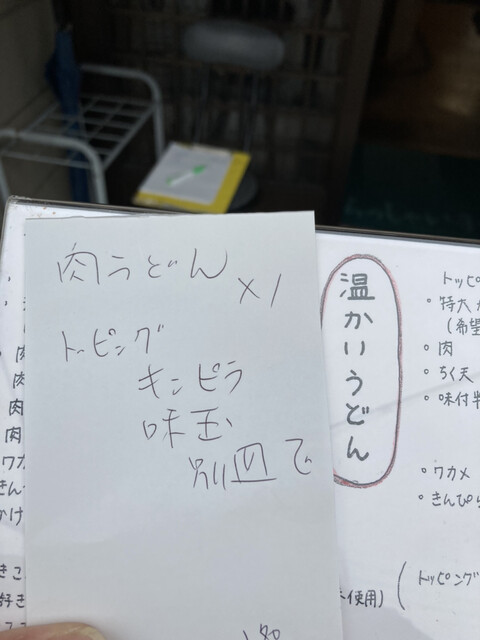 肉うどん ×1
トッピング
キンピラ
味玉
別皿で
温かいうどん
・特大
(希望
・肉
・ちく天
・味付半
・ワカメ
・きんぴら
(トッピング
使用)
肉
肉
肉
肉
ワカ
きん
かけ
きこ
好き